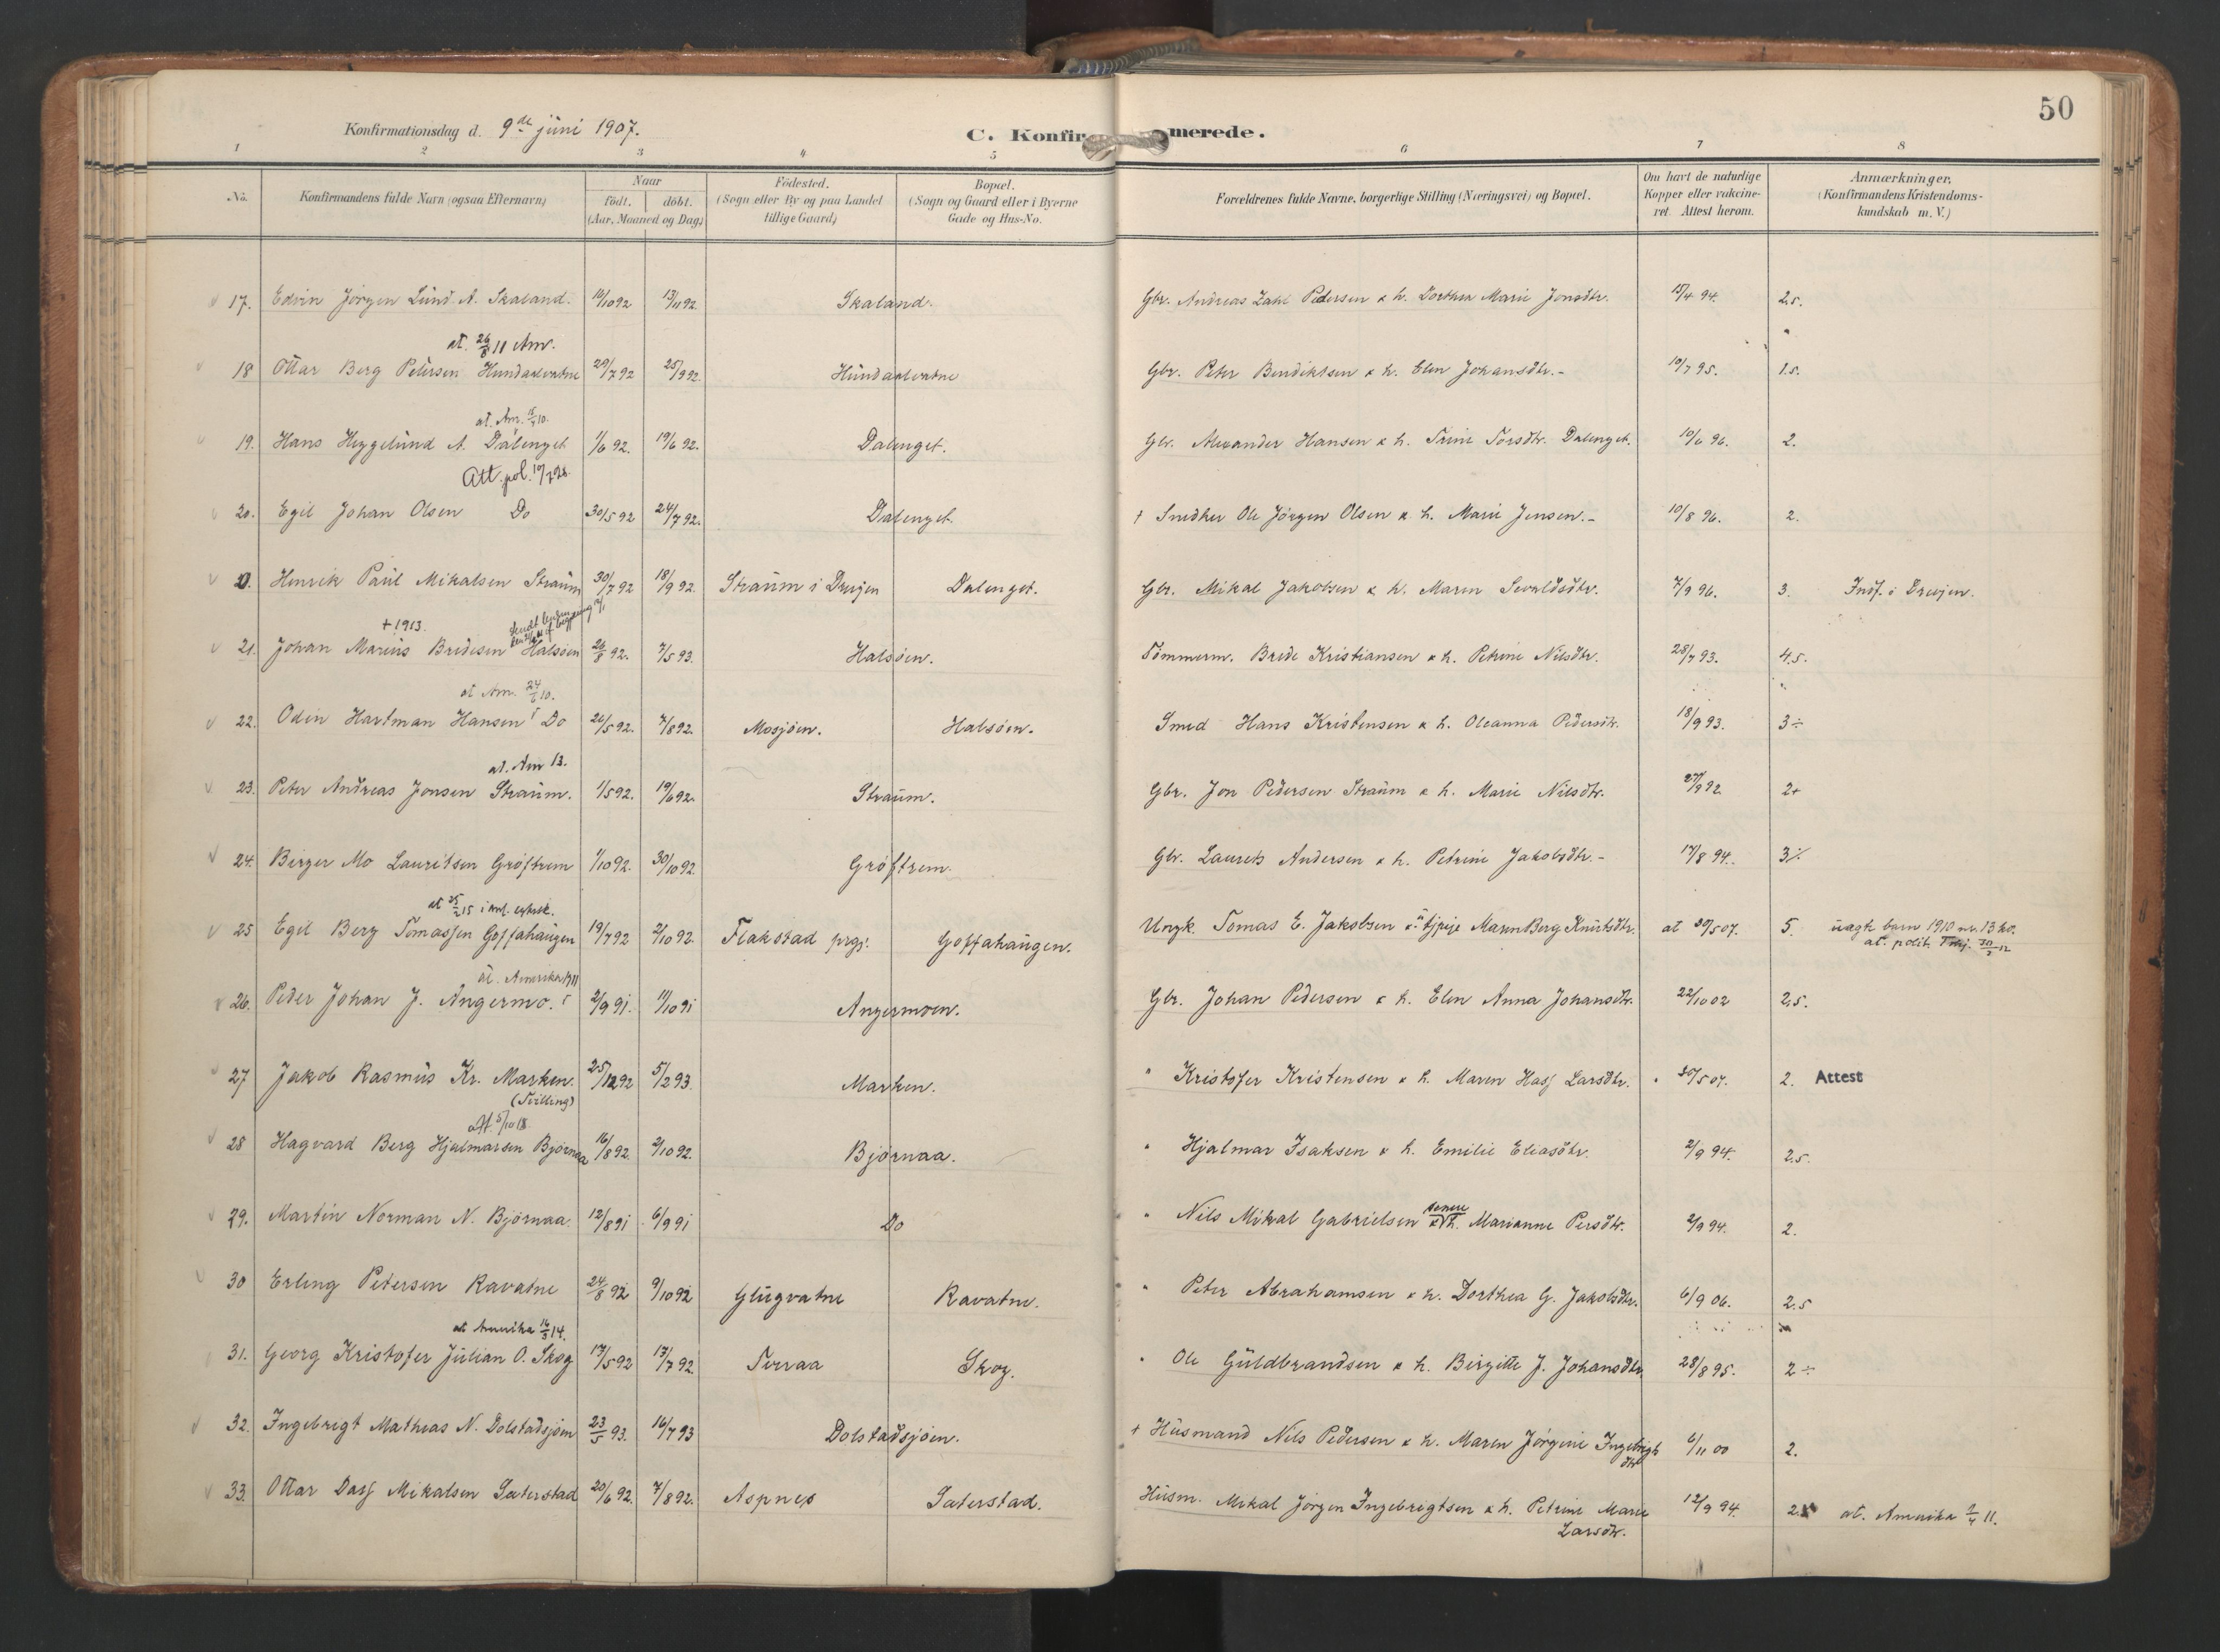 50
Konfirmationsdag d. 9de juni 1907.
C. Konfirmerede.
1 2 3 4 5 6 7 8
No. Konfirmandens fulde Navn (ogsaa Efternavn) Naar födt. döbt. (Aar, Maaned og Dag) Födested. (Sogn eller By og paa Landet tillige Gaard) Bopæl. (Sogn og Gaard eller i Byerne Gade og Hus-No. Forældrenes fulde Navne, borgerlige Stilling (Næringsvei) og Bopæl. Om havt de naturlige Kopper eller vakcineret. Attest herom. Anmærkninger, (Konfirmandens Kristendomskundskab m. V.)
17. Edvin Jörgen Lünd A. Skaland. 16/10 92 13/11 92. Skaland. Gbr. Andreas Zahl Pedersen & h. Dorthea Marie Jonsdtr. 15/4 94. 2.5.
at. 26/8 11 Am.
18 Ottar Berg Petersen Hundaalvatne 29/7 92 25/9 92. Hundaalvatne Gbr. Peter Bendiktsen & h. Elen Johansdtr.- 19/7 95. 1.5.
at. Am. 15/4 10.
19. Hans Heggelund A. Dalenget 1/6 92. 19/6 92. Dalenget. Gbr. Alexander Hansen & h. Trine Torsdtr. Dalenget. 10/6 96. 2.
Att. pol. 10/7 28.
20. Egil Johan Olsen Do 30/5 92 24/7 92. Dalenget. + Snedker Ole Jörgen Olsen & h. Marie Jensen.- 10/8 96. 2.
Henrik Paül Mikalsen Straüm 30/7 92 18/9 92. Straüm i Drevjen Dalenget. Gbr. Mikal Jakobsen & h. Maren Sevaldsdtr. 7/9 96. 3. Indf. i Drevjen.
+ 1913.
21. Johan Marius Bredesen Halsöen 26/8 92. 7/5 93. Halsöen. Tömmerm. Brede Kristiansen & h. Petrine Nilsdtr. 28/7 93. 4.5.
at Am. 24/6 10.
22. Odin Hartman Hansen Do 26/5 92. 7/8 92. Mosjöen. Halsöen. Smed Hans Kristensen & h. Oleanna Pedersdtr. 18/9 93. 3÷
at. Am 13.
23. Peter Andreas Jonsen Straüm. 1/5 92. 19/6 92. Straüm. Gbr. Jon Pedersen Straüm & h. Marie Nilsdtr. 27/9 92 2+
24. Birger Mo Lauritsen Gröftrem 1/10 92. 30/10 92. Gröftrem. Gbr. Laurits Andersen & h. Petrine Jakobsdtr.- 17/8 94. 3÷
at 25/2 15
25 Egil Berg Tomassen Goffahaügen 19/7 92 2/10 92. Flakstad prgj. Goffahaügen. Ungk. Tomas E. Jakobsen & tjpije Maren Berg Knütsdtr. at 30/5 07. 5. üægte barn 1910 nr. 13 ko.
at. polit.
at. Amerika 1911
26. Peder Johan J. Angermo. 2/9 91. 11/10 91 Angermoen. Gbr. Johan Pedersen & h. Elen Anna Johansdtr. 22/10 02 2.5.
27 Jakob Rasmüs Kr. Marken. 25/12 92 5/2 93. Marken. " Kristofer Kristensen & h. Maren Hass Larsdtr. " 30/5 07. 2. Attest
(Tvilling)
Att. 5/10 18
28 Hagvard Berg Hjalmarsen Björnaa 16/8 92. 2/10 92. Björnaa. " Hjalmar Isaksen & h. Emilie Eliasdtr. 2/9 94. 2.5.
29. Martin Norman N. Björnaa. 12/8 91 6/9 91 Do " Nils Mikal Gabrielsen & senere h. Marianne Persdtr. 2/9 94. 2.
30 Erling Petersen Ravatne 24/8 92 9/10 92 Glugvatne Ravatne. " Peter Abrahamsen & h. Dorthea G. Jakobsdtr. 6/9 06. 2.5
at Amerika 16/3 14.
31. Georg Kristofer Jülian O. Skog 17/5 92 17/7 92. Terraa Skog. " Ole Güldbrandsen & h. Birgitte J. Johansdtr. 28/8 95. 2÷
32. Ingebrigt Mathias N. Dolstadsjöen 23/5 93. 16/7 93 Dolstadsjöen. + Hüsmand Nils Pedersen & h. Maren Jörgine Ingebrigtsdtr 6/11 00 2.
33. Ottar Dass Mikalsen Sæterstad 20/6 92. 7/8 92. Aspnes Sæterstad. Hüsm. Mikal Jörgen Ingebrigtsen & h. Petrine Marie Larsdtr. 12/9 94. 2.5 at. Amerika 7/4 11.